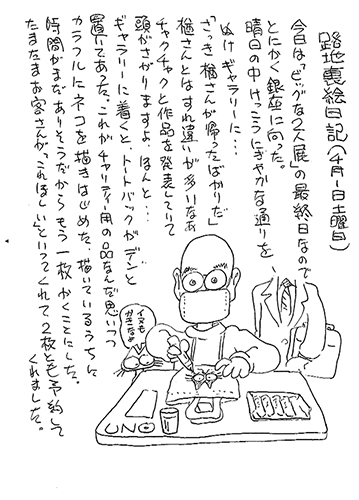 路地裏絵日記(4月1日土曜日)
今日は、「ビッグな2人展」の最終日なので
とにかく銀座に向った。
晴日の中けっこうにぎやかな通りを
ぬけギャラリーに…
「さっき楢さんが帰ったばかりだ」
楢さんとはすれ違いが多いなあ
チャクチャクと作品を発表してりて
頭がさがりますよ、ほんと…
ギャラリーに着くと、トートバックがデンと
置いてあった。これがチャリティー用の品なんだ思いつつ
カラフルにネコを描きはじめた、描いているうちに
時間がまだありそうだからもう一枚かくことにした。
たまたまお客さんが、これほしい、といってくれて2枚とも予約して
くれました。
イスでも
かきなよ
UNO